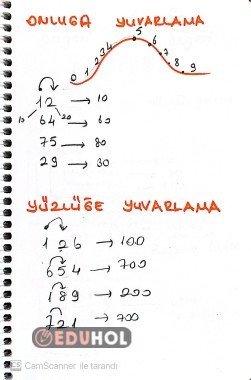 ONLUĞA YUVARLAMA
0 1 2 3 4 5 6 7 8 9
12 → 10
10 20
64 → 60
75 → 80
29 → 30
YÜZLÜĞE YUVARLAMA
126 → 100
654 → 700
189 → 200
721 → 700
EDUHOL
CS CamScanner ile tarandı